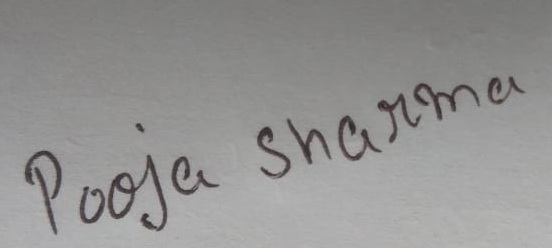 Pooja sharma